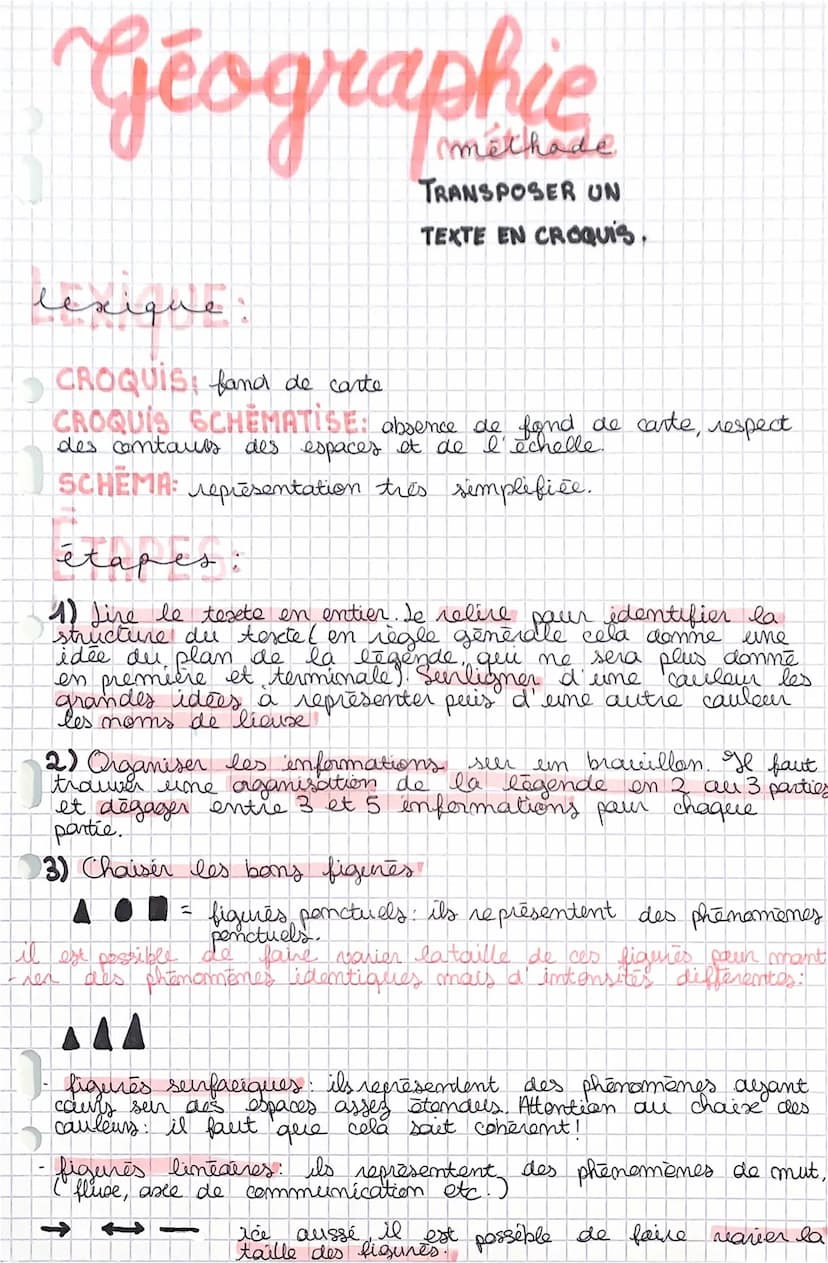 Géographie
méthode
TRANSPOSER UN
TEXTE EN CROQUIS.
lexique :
CROQUIS: fond de carte
CROQUIS SCHÉMATISÉ: absence de fond de carte, respect
des contours des espaces et de l'échelle.
SCHÉMA: représentation très simplifiée.
étapes :
1) Lire le texte en entier. Le relire pour identifier la
structure du texte ( en règle générale cela donne une
idée du plan de la légende, qui ne sera plus donné
en première et terminale). Surligner d'une couleur les
grandes idées à représenter puis d'une autre couleur
les noms de lieux
2) Organiser les informations sur un brouillon. Il faut
trouver une organisation de la légende en 2 ou 3 parties
et dégager entre 3 et 5 informations pour chaque
partie.
3) Choisir les bons figurés
= figurés ponctuels : ils représentent des phénomènes
ponctuels.
il est possible de faire varier la taille de ces figurés pour mont
-rer des phénomènes identiques mais d'intensités différentes :
- figurés surfaciques : ils représentent des phénomènes ayant
cours sur des espaces assez étendus. Attention au choix des
couleurs : il faut que cela soit cohérent !
- figurés linéaires : ils représentent des phénomènes de mvt,
( flux, axe de communication etc.)
ici aussi, il est possible de faire varier la
taille des figurés.